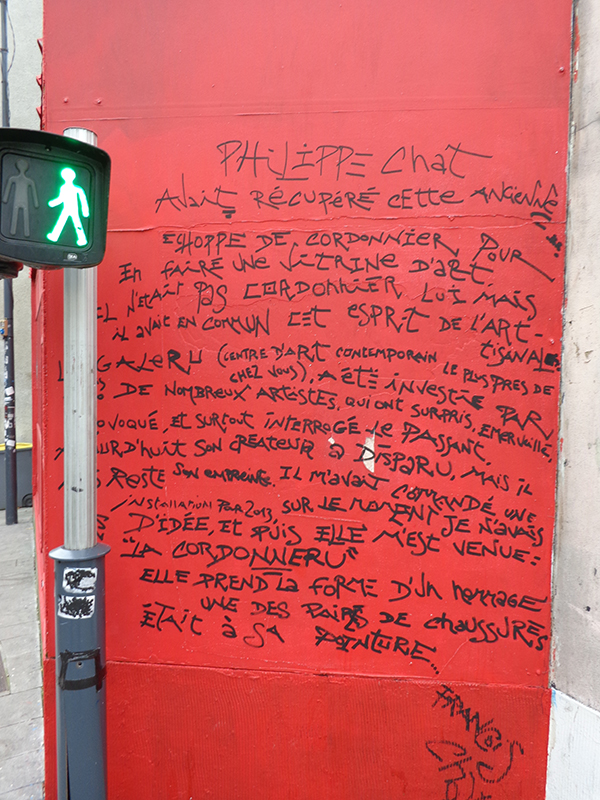 PHILIPPE Chat
Avait RÉCUPÉRÉ CETTE ANCIENNE
EChOPPE DE CORDONNIER POUR
En FAIRE UNE VITRINE D'ART.
IL N'ETAIT PAS CORDONNIER LUI MAIS
il avait EN COMMUN CET ESPRIT DE L'ART-
TISANAL.
GALERU (CENTRE D'ART CONTEMPORAIN LE PLUS PRES DE
CHEZ VOUS), A ÉTÉ iNVESTIE PAR
DE NOMBREUX ARTISTES, QUI ONT SURPRIS, EMERVEILLÉ,
VOQUÉ, ET SURTOUT INTERROGÉ LE PASSANT.
D'HUIT SON CREATEUR A DISPARU, MAIS IL
RESTE SON EMPREINTE. IL M'AVAIT COMMANDÉ UNE
INSTALLATION POUR 2013, SUR LE MOMENT JE N'AVAIS
D'IDÉE, ET PUIS ELLE M'EST VENUE:
"LA CORDONNERU"
ELLE PREND LA FORME D'UN hommAGE
UNE DES PAIRES DE ChAUSSURES
ÉTAIT à SA POINTURE...
FRANÇOIS